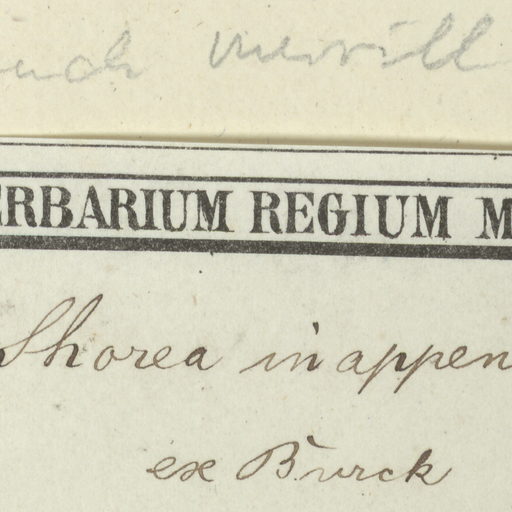 Merrill
ERBARIUM REGIUM M
Shorea inappen
ex Burck